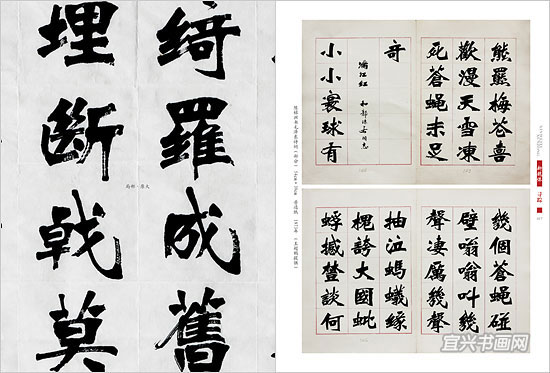 綺羅成舊
埋斷戟莫
局部·原大
熊羆梅花喜
歡漫天雪凍
死蒼蠅未足
奇
滿江紅 和郭沫若同志
小小寰球有
幾個蒼蠅碰
壁嗡嗡叫幾
聲凄厲幾聲
抽泣螞蟻緣
槐誇大國蚍
蜉撼樹談何
宜兴书画网